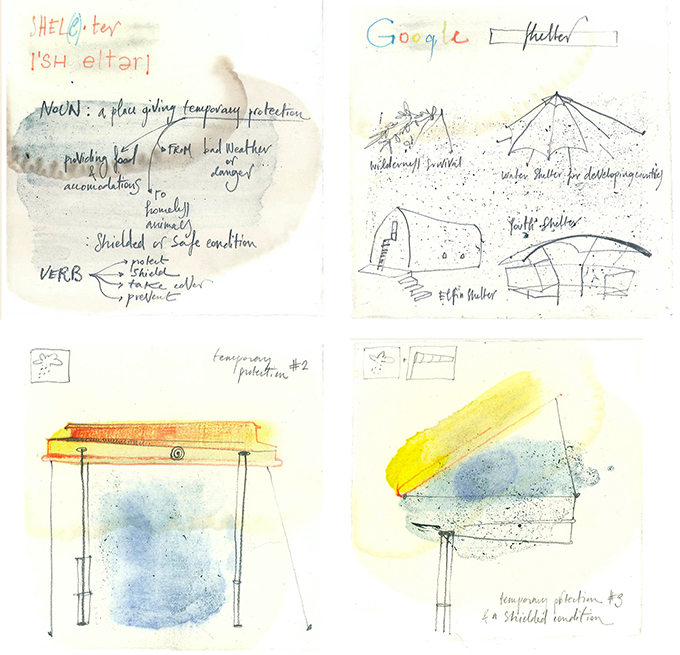 SHEL(e)·ter
|'SH eltər|
NOUN : a place giving temporary protection
providing food
& accomodations
FROM bad Weather
or
danger
TO
homeless
animals
: Shielded or Safe condition
VERB
protect
Shield
take cover
prevent
Google Shelter
wilderness survival
water shelter for developing countries
Youth Shelter
Elfin Shelter
temporary
protection #2
temporary protection #3
& a Shielded condition